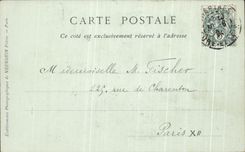 CARTE POSTALE
Ce côté est exclusivement réservé à l'adresse
Mademoiselle M. Fischer
rue de Charenton
Paris XII
Etablissements Photographiques de NEURDEIN Frères. — Paris